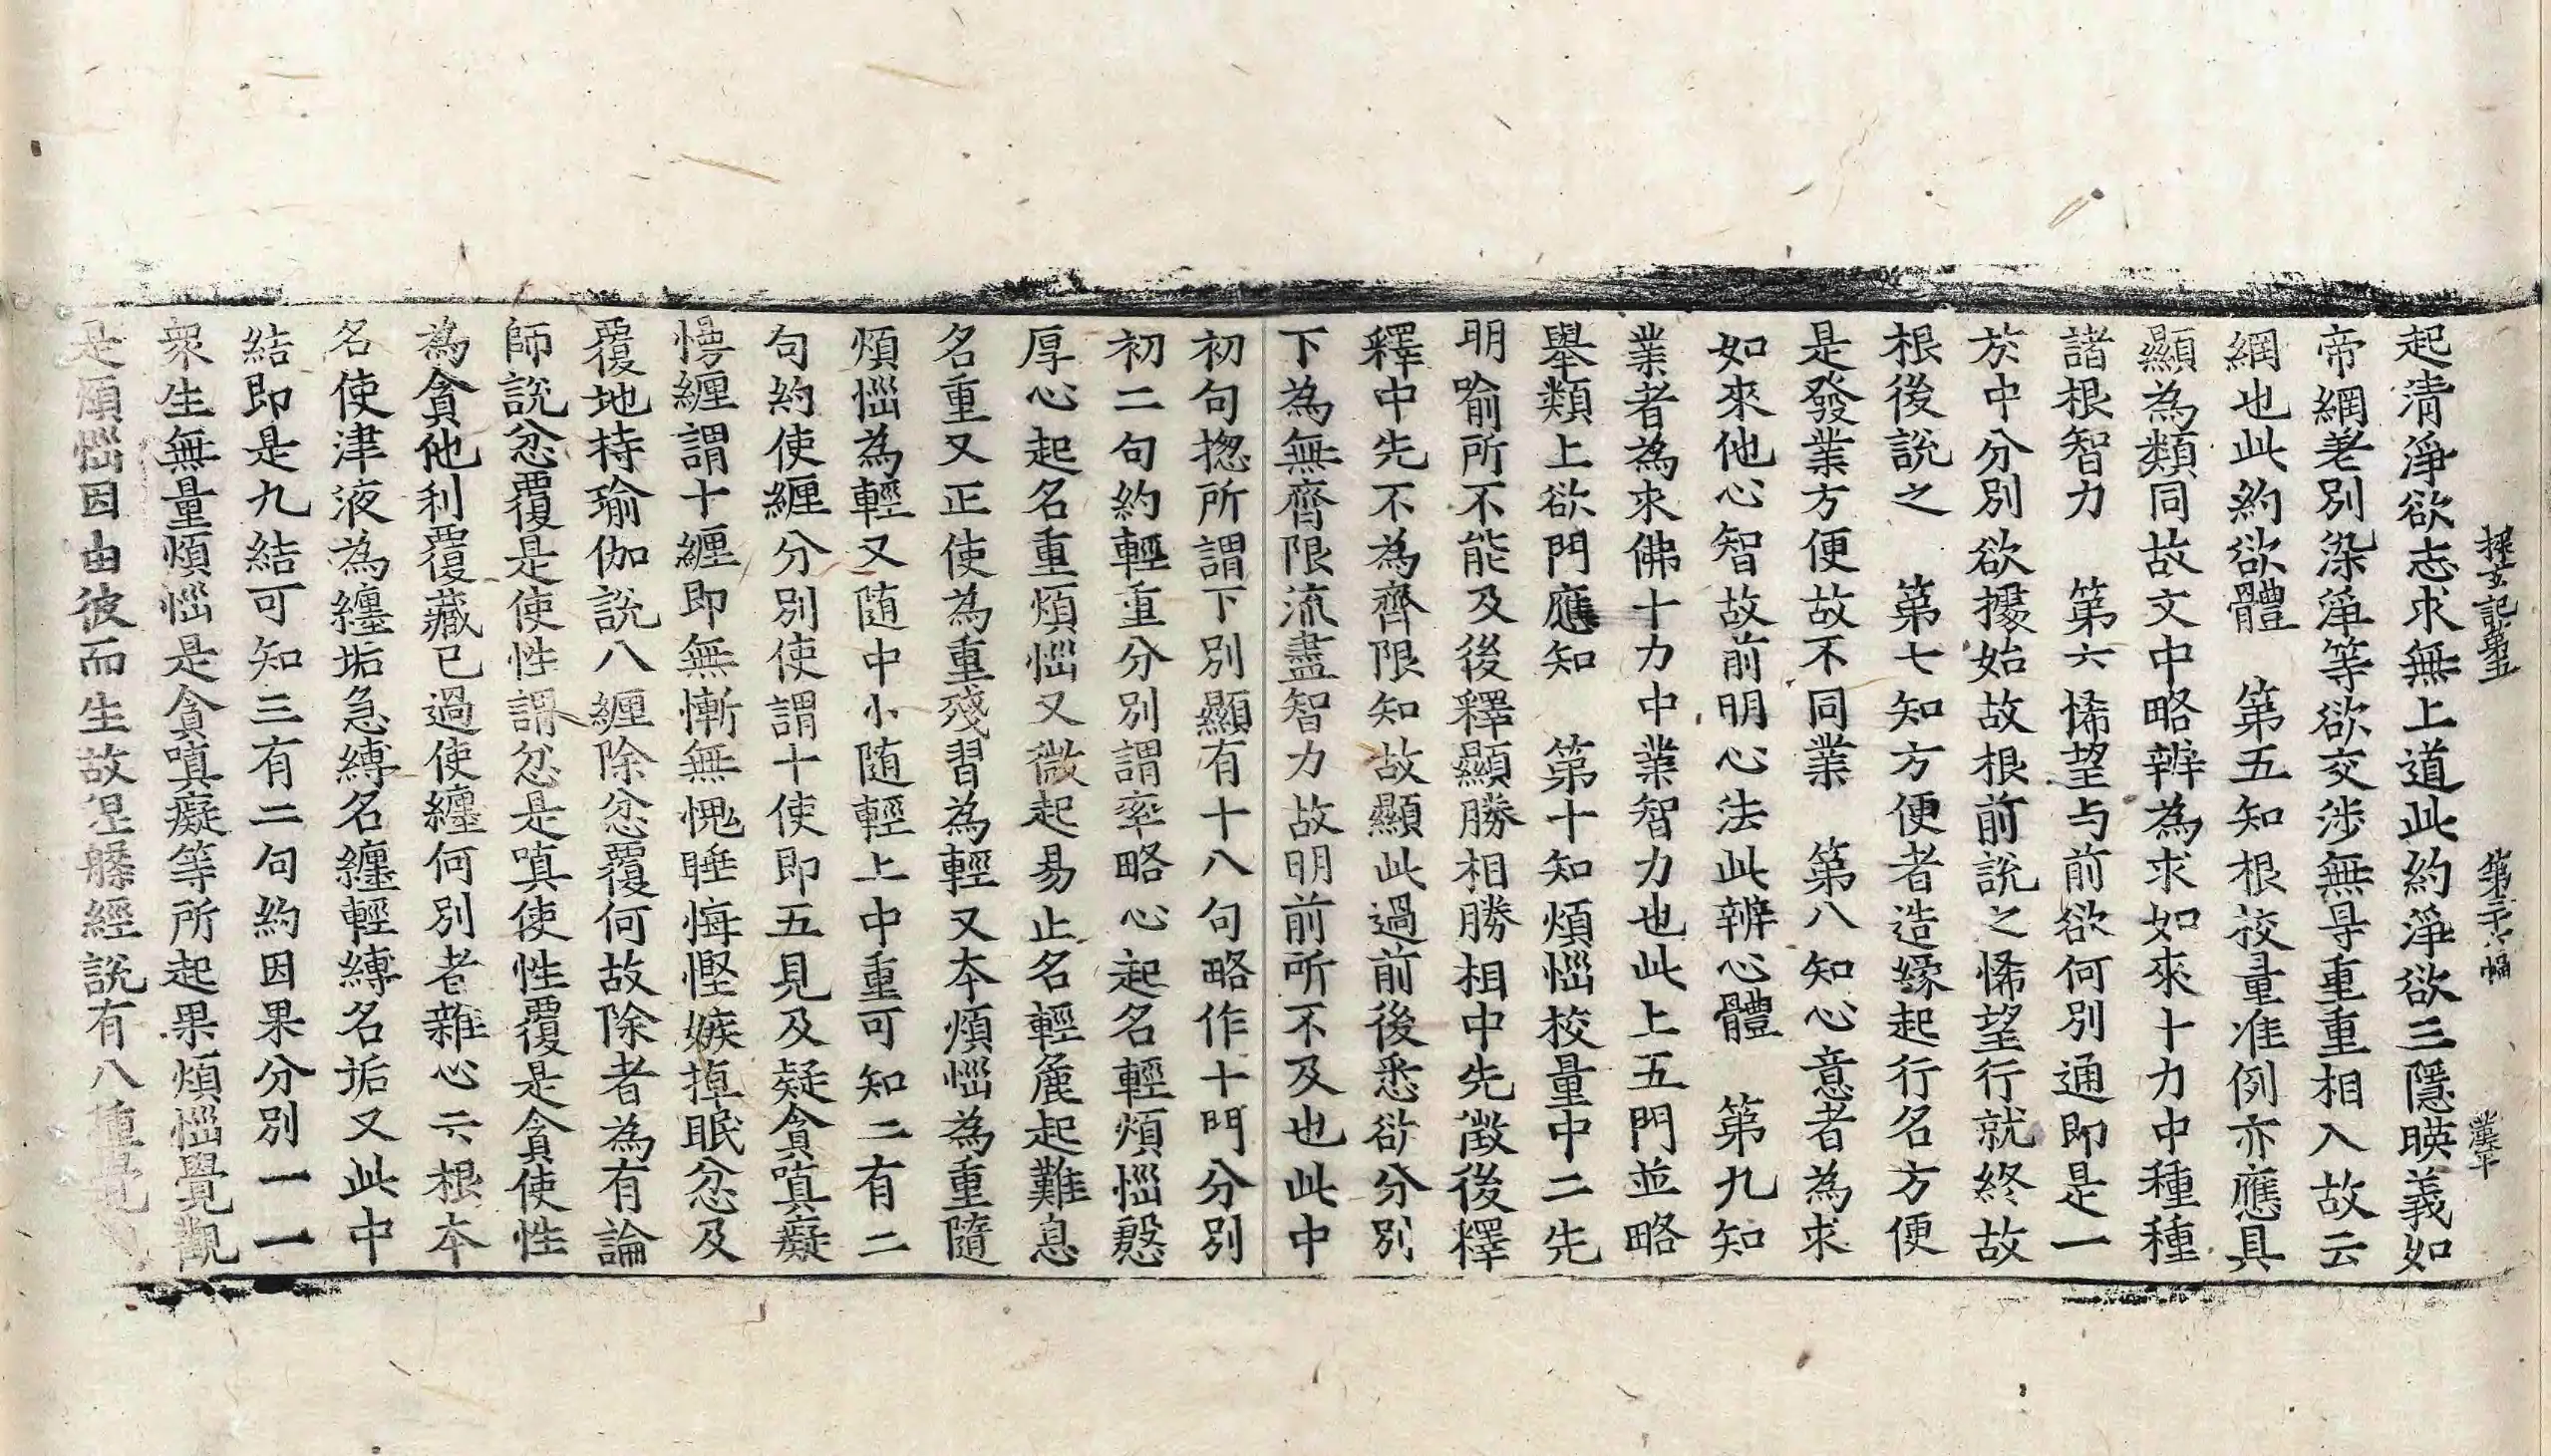 探玄記第五　第二十八幅　
起清淨欲志求無上道此約淨欲三隱暎義如
帝網差別染淨等欲交涉無㝵重重相入故云
網也此約欲體　第五知根挍量准例亦應具
顯為類同故文中略辨為求如來十力中種種
諸根智力　第六悕望与前欲何別通即是一
於中分別欲據始故根前說之悕望行就終故
根後說之　第七知方便者造緣起行名方便
是發業方便故不同業　第八知心意者為求
如來他心智故前明心法此辨心體　第九知
業者為求佛十力中業智力也此上五門並略
舉類上欲門應知　第十知煩惱校量中二先
明喻所不能及後釋顯勝相勝相中先徵後釋
釋中先不為齊限知故顯此過前後悉欲分別
下為無齊限流盡智力故明前所不及也此中
初句揔所謂下別顯有十八句略作十門分別
初二句約輕重分別謂率略心起名輕煩惱慇
厚心起名重煩惱又微起易止名輕麁起難息
名重又正使為重殘習為輕又本煩惱為重隨
煩惱為輕又随中小随輕上中重可知二有二
句約使纏分別使謂十使即五見及疑貪嗔癡
慢纏謂十纏即無慚無愧睡悔慳嫉掉眠忿及
覆地持瑜伽說八纏除忿覆何故除者為有論
師說忿覆是使性謂忿是嗔使性覆是貪使性
為貪他利覆藏已過使纏何別者雜心云根本
名使津液為纏垢急縛名纏輕縛名垢又此中
結即是九結可知三有二句約因果分別一一
衆生無量煩惱是貪嗔癡等所起果煩惱覺觀
是煩惱因由彼而生故涅槃經說有八種覺